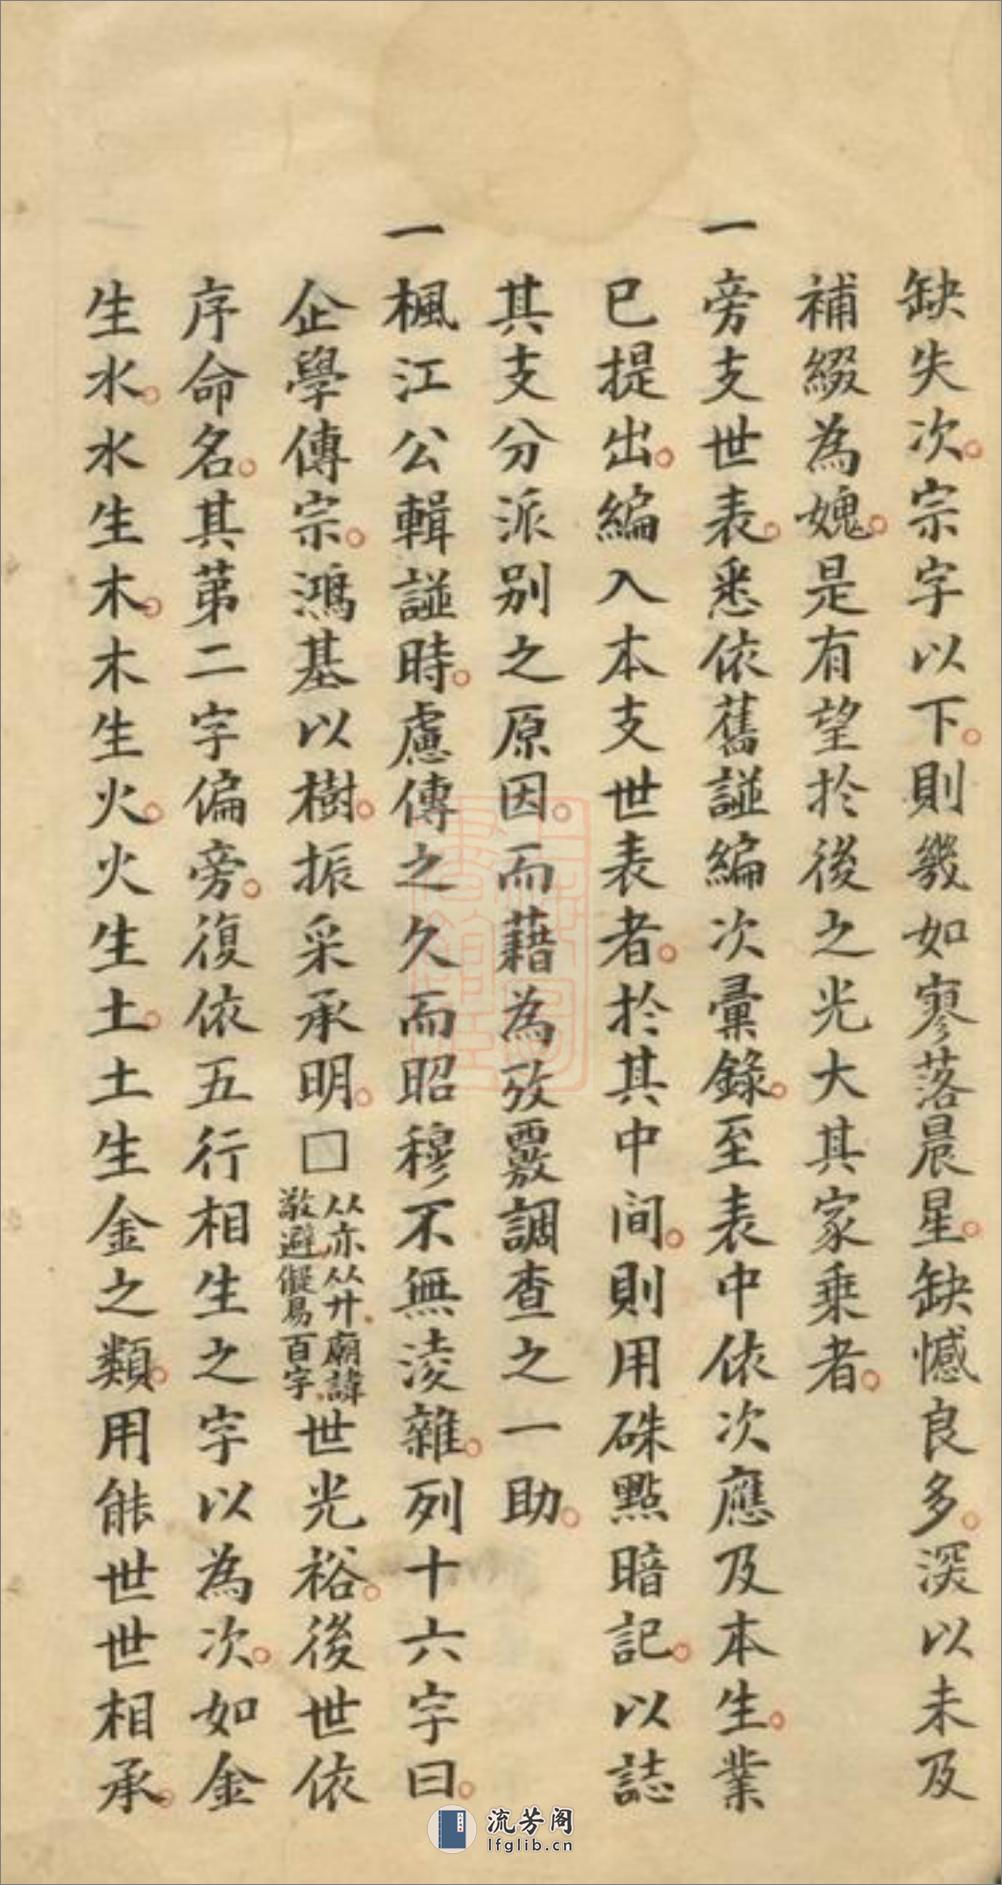 缺失次宗字以下則幾如寥落晨星缺憾良多深以未及
補綴為媿是有望於後之光大其家乘者
一旁支世表悉依舊諩編次彙錄至表中依次應及本生業
已提出編入本支世表者於其中間則用硃點暗記以誌
其支分派别之原因而藉為攷覈調查之一助
一楓江公輯諩時慮傳之久而昭穆不無淩雜列十六字曰
企學傳宗鴻基以樹振采承明□从亦从廾廟諱敬避儗易百字世光裕後世依
序命名其第二字偏旁復依五行相生之字以為次如金
生水水生木木生火火生土土生金之類用能世世相承
流芳阁
lfglib.cn